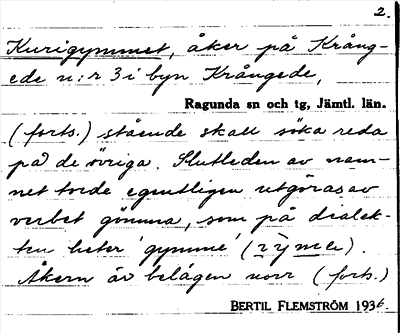 2.
Kurigymmet, åker på Krång-
ede n:r 3 i byn Krångede,
Ragunda sn och tg, Jämtl. län.
(forts.) stående skall söka reda
på de övriga. Slutleden av nam-
net torde egentligen utgöras av
verbet gömma, som på dialek-
ten heter 'gymme'
Åkern är belägen norr (forts.)
BERTIL FLEMSTRÖM 1936.